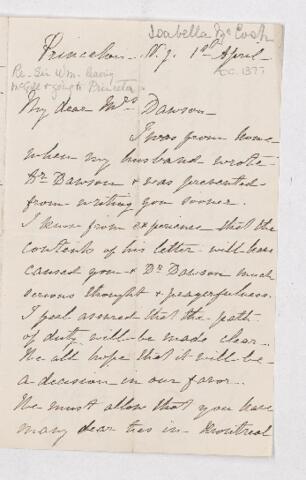 Isabella McCosh
Princeton. N.J. 1st April.
c. 1877
Re- Sir Wm. leaving
McGill & going to Princeton
My dear Mrs Dawson-
I was from home
when my husband wrote
Dr Dawson & was prevented
from writing you sooner.
I know from experience that the
contents of his letter will have
caused you & Dr Dawson much
serious thought & prayerfulness.
I feel assured that the path
of duty will be made clear.
We all hope that it will be
a decision in our favor.
We must allow that you have
many dear ties in Montreal